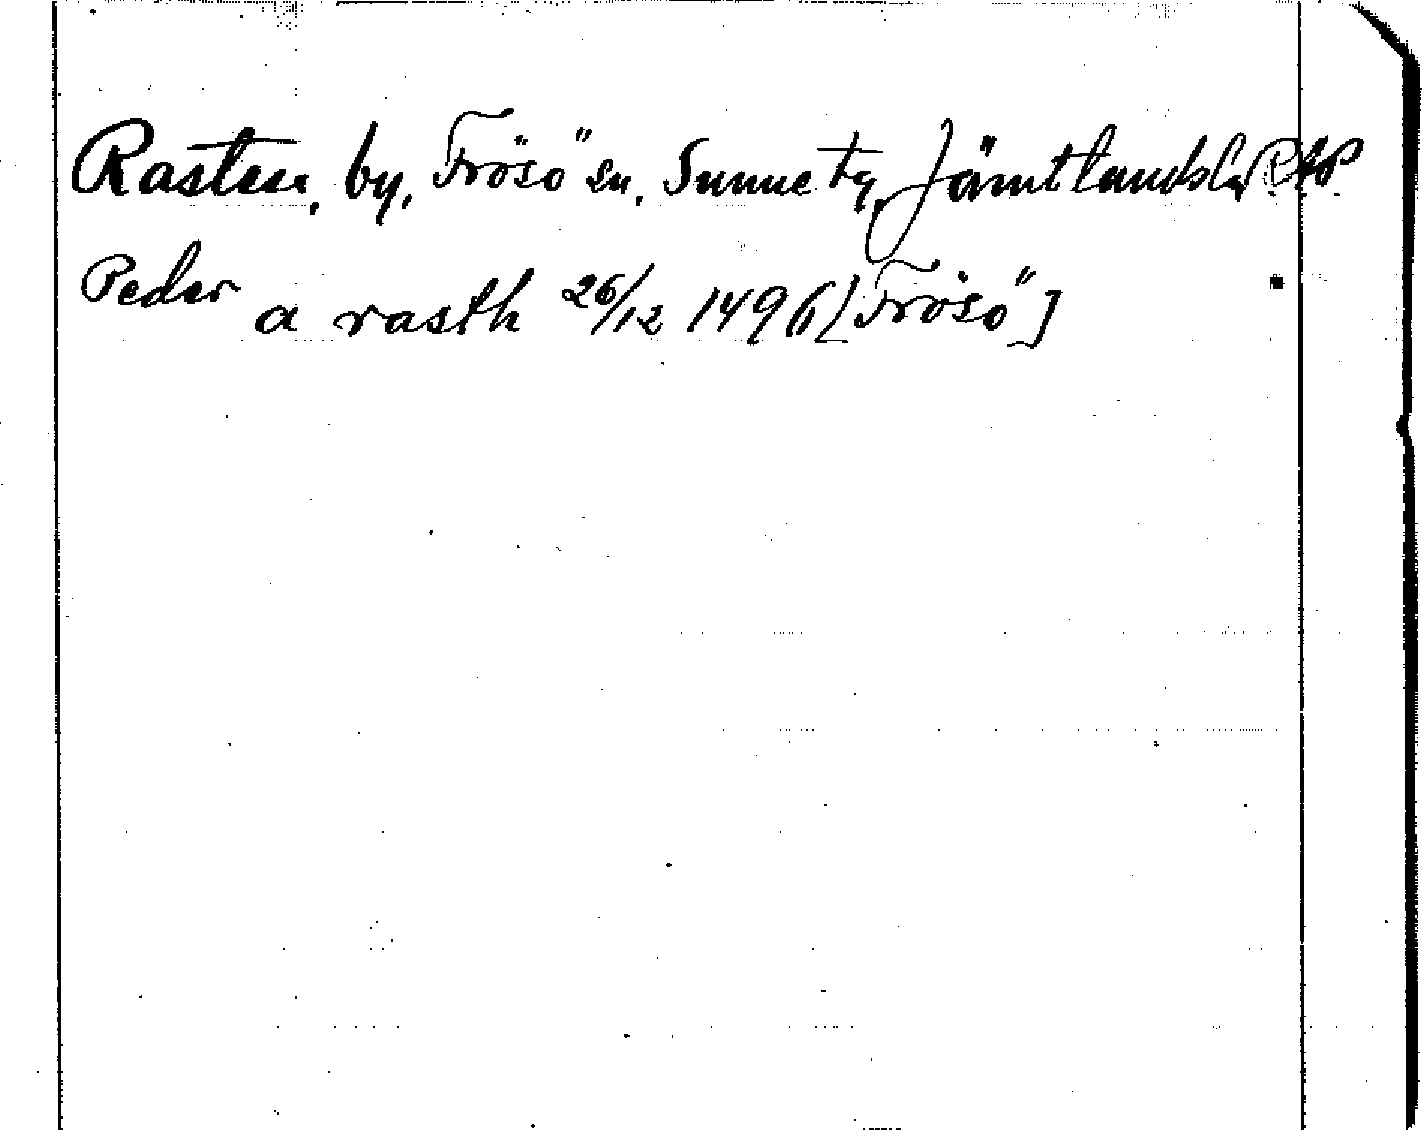 Rasten, by, Frösö sn, Sunne tg, Jämtlands l. RAP
Peder a rasth 26/12 1496 [Frösö]